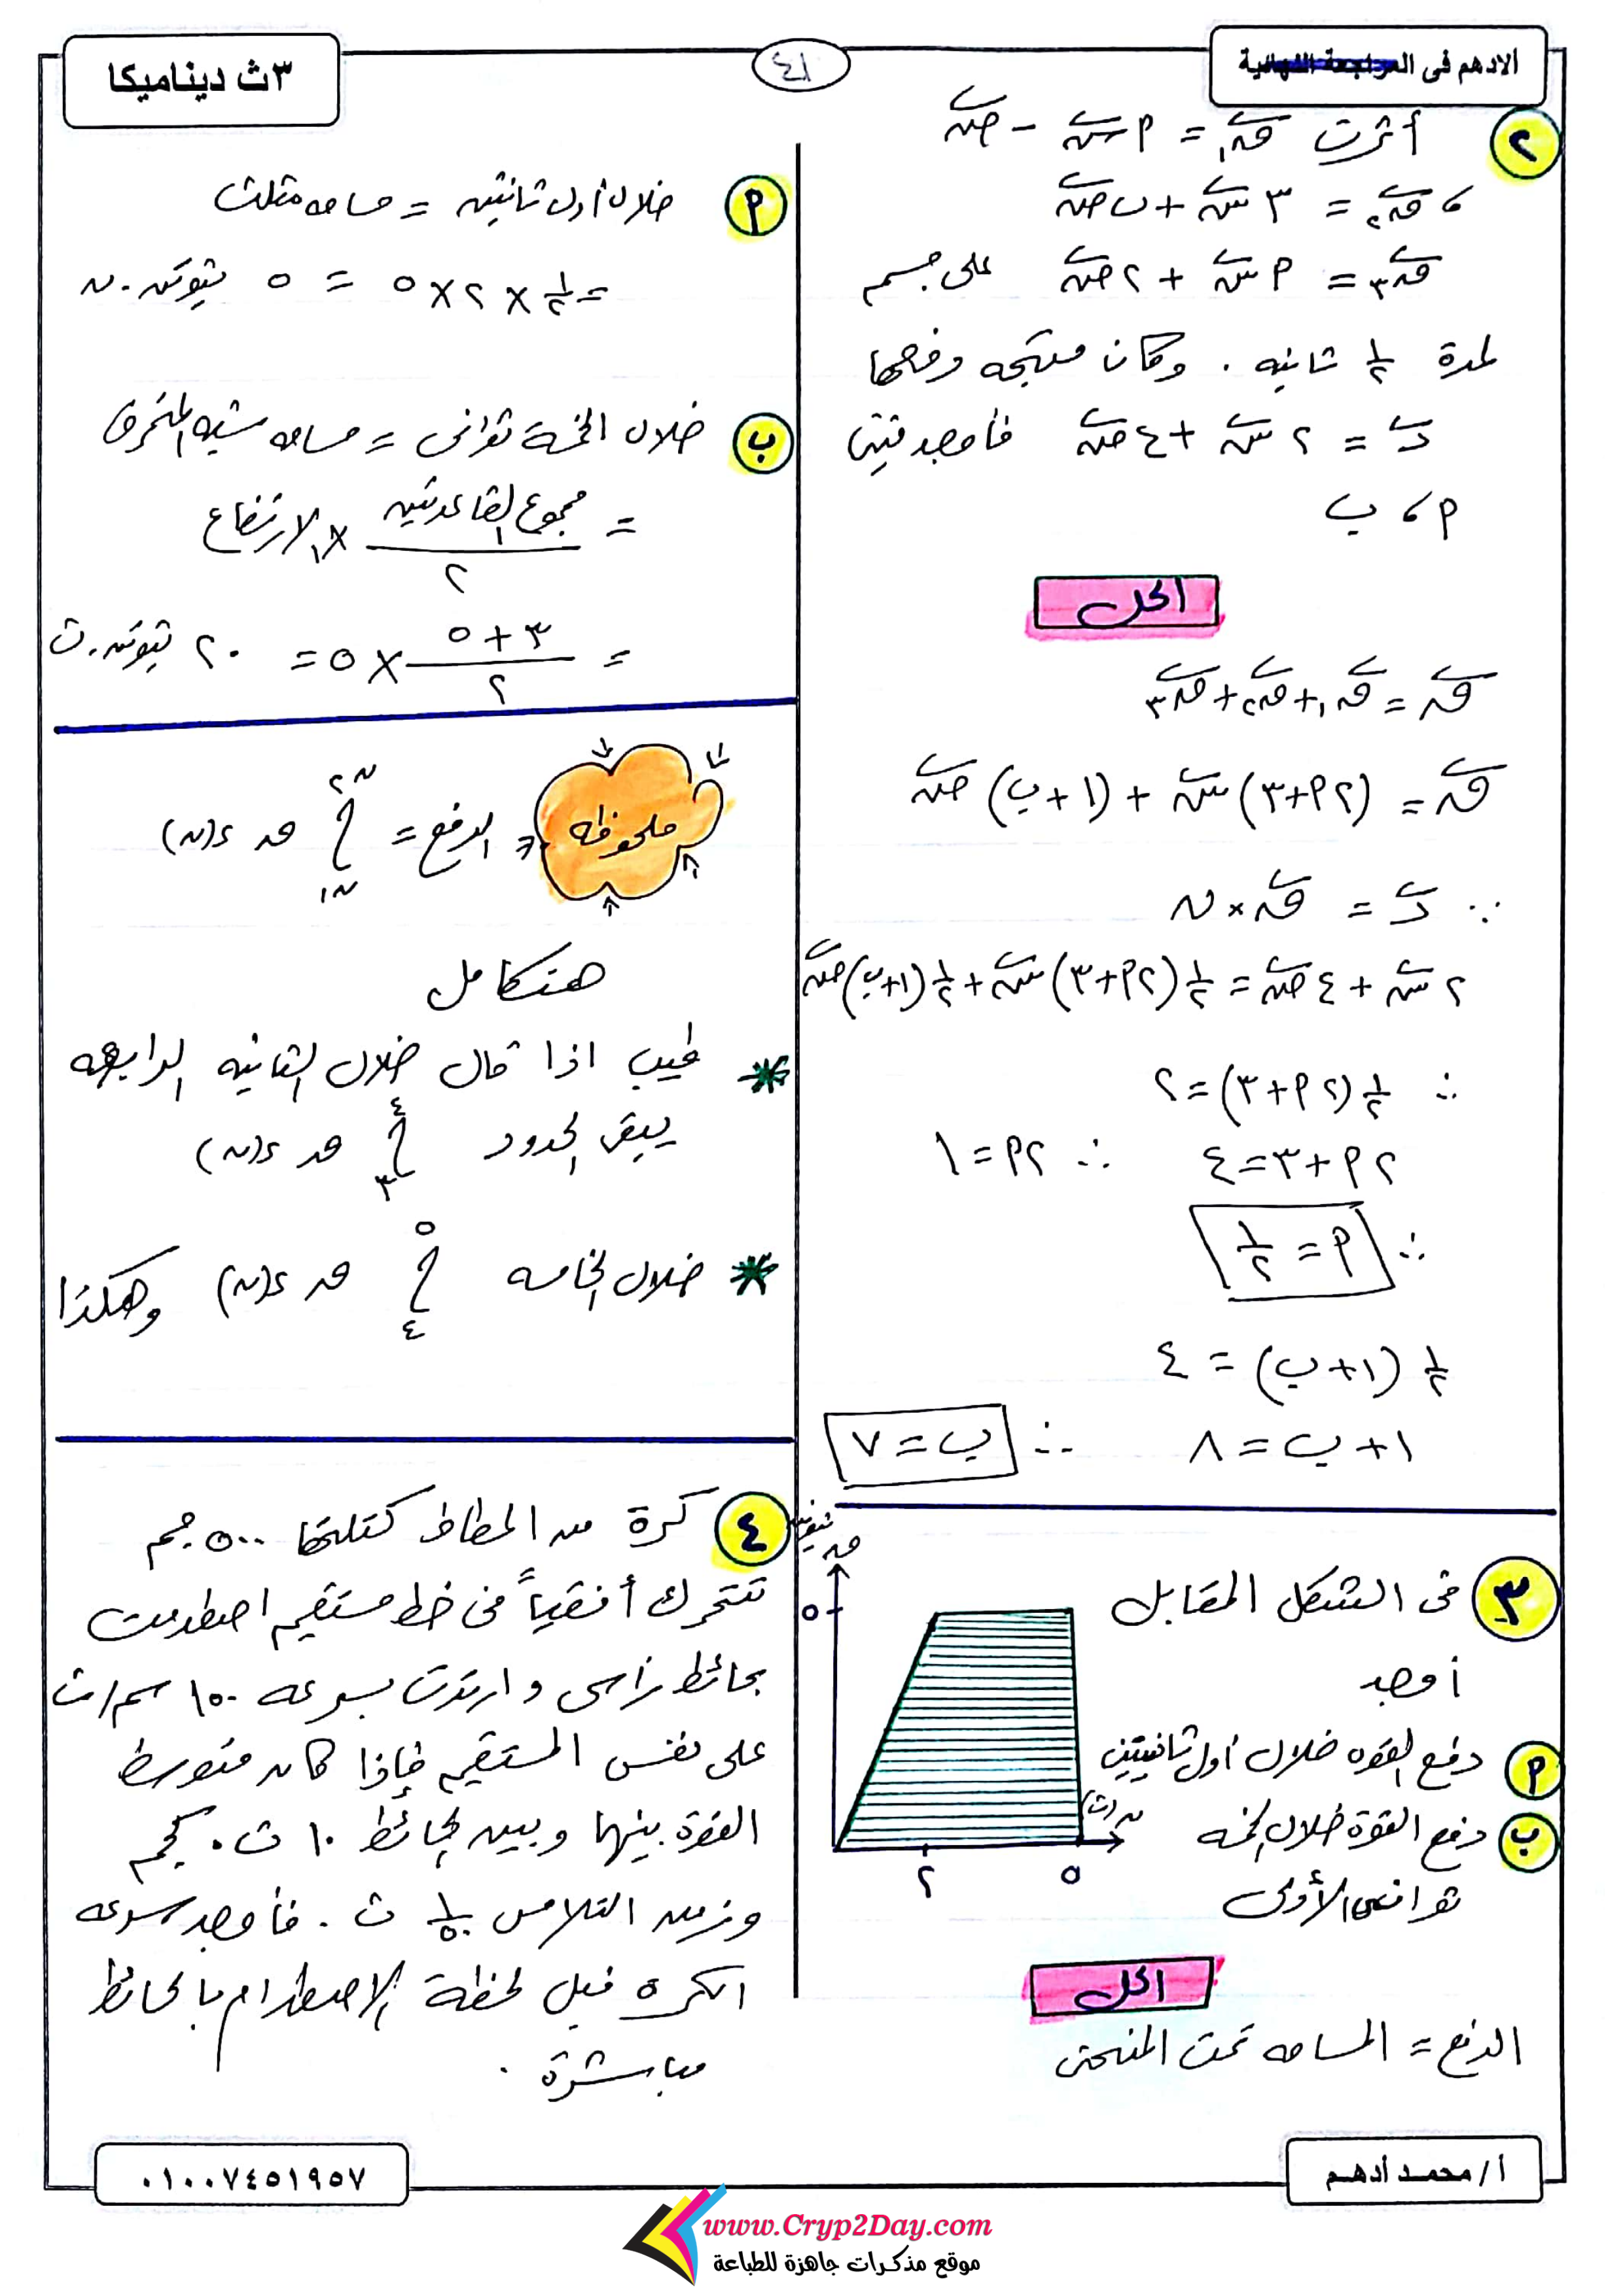 الادهم فى المراجعة النهائية
٤١
٣ث ديناميكا
٢ أثرت ق١ = أ س - ص
، ق٢ = ٣ س + ب ص
ق٣ = أ س + ٢ ص على جسم
لمدة ١/٢ ثانيه . وكان متجه دفعها
د = ٢ س + ٤ ص فأوجد قيمتى
أ ، ب
الحل
ق = ق١ + ق٢ + ق٣
ق = (٢أ+٣) س + (١+ب) ص
∵ د = ق × ن
٢ س + ٤ ص = ١/٢ (٢أ+٣) س + ١/٢ (١+ب) ص
∴ ١/٢ (٢أ+٣) = ٢
٢أ+٣ = ٤ ∴ ٢أ = ١
∴ أ = ١/٢
١/٢ (١+ب) = ٤
١+ب = ٨ ∴ ب = ٧
٣ فى الشكل المقابل
أوجد
أ دفع القوه خلال أول ثانيتين
ب دفع القوة خلال الخمسه
ثوانى الأولى
ق نيوتن
٥
ن (ث)
٢ ٥
الحل
الدفع = المساحه تحت المنحنى
أ خلال أول ثانيتين = مساحه مثلث
= ١/٢ × ٢ × ٥ = ٥ نيوتن . ن
ب خلال الخمسة ثوانى = مساحه شبه المنحرف
= مجموع القاعدتين / ٢ × الارتفاع
= ٣ + ٥ / ٢ × ٥ = ٢٠ نيوتن . ث
ملحوظه الدفع = ∫ ن١ ن٢ ق ء(ن)
هنكامل
* طيب اذا قال خلال الثانيه الرابعه
يبقى الحدود ∫ ٣ ٤ ق ء(ن)
* خلال الخامسه ∫ ٤ ٥ ق ء(ن) وهكذا
٤ كرة من المطاط كتلتها ٥٠٠ جم
تتحرك أفقياً فى خط مستقيم اصطدمت
بحائط رأسى وارتدت بسرعه ١٥٠ سم/ث
على نفس المستقيم فإذا كان متوسط
القوة بينها وبين الحائط ١٠ ث . كجم
وزمن التلامس ١/٥٠ ث . فأوجد سرعه
الكره قبل لحظة الاصطدام بالحائط
مباشرة .
أ / محمد أدهم
٠١٠٠٧٤٥١٩٥٧
www.Cryp2Day.com
موقع مذكرات جاهزة للطباعة